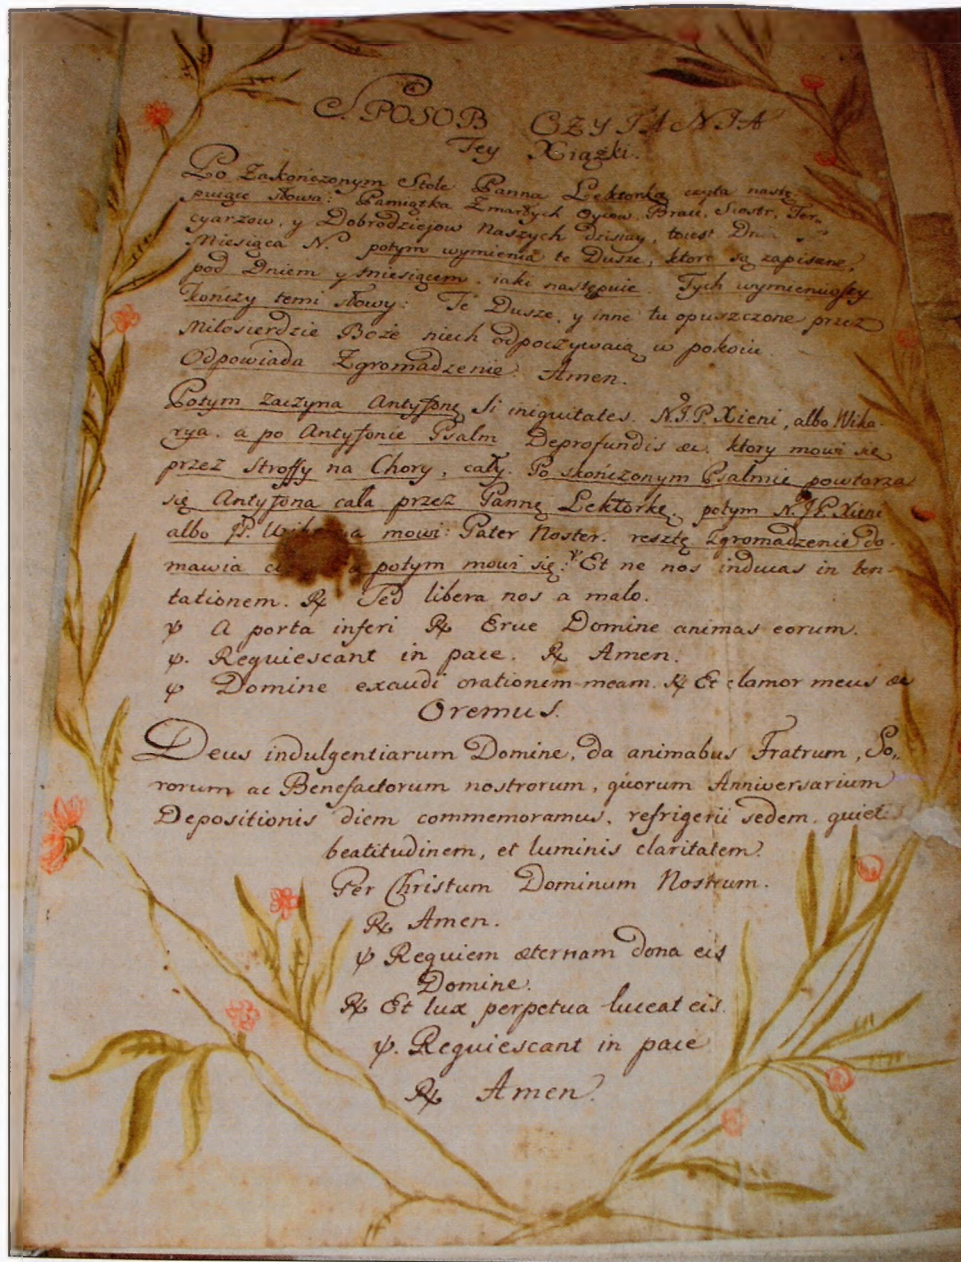 SPOSOB CZYTANIA
Tey Xiąszki.
Po Zakończonym Stole Panna Lektorka czyta nastę
puiące słowa: Pamiątka Zmarłych Oycow, Braci, Siostr, Ter,,
cyarzow, y Dobrodziejow Naszych dzisiay, to iest Dnia
Miesiąca N. potym wymienia te Dusze, ktore są zapisane,
pod Dniem y miesiącem, iaki następuie. Tych wymieniwszy
kończy temi słowy: Te Dusze, y inne tu opuszczone przez
Miłosierdzie Boże niech odpoczywaią w pokoiu
Odpowiada Zgromadzenie. Amen.
Potym zaczyna Antyfonę Si iniquitates. N.J.P. Xieni, albo Wika-
rya. a po Antyfonie Psalm Deprofundis &c. ktory mowi się
przez Stroffy na Chory, cały. Po skończonym Psalmie powtarza
się Antyfona cała przez Pannę Lektorkę. potym N.J.P. Xieni
albo P. mowi: Pater Noster. resztę Zgromadzenie do-
mawia potym mowi się: ℣ Et ne nos inducas in ten-
tationem. ℟ Sed libera nos a malo.
℣ A porta inferi ℟ Erue Domine animas eorum.
℣. Requiescant in pace. ℟ Amen.
℣ Domine exaudi orationem meam. ℟ Et clamor meus &c
Oremus.
Deus indulgentiarum Domine, da animabus Fratrum, So,,
rorum ac Benefactorum nostrorum, quorum Anniversarium
Depositionis diem commemoramus, refrigerii sedem, quiet
beatitudinem, et luminis claritatem.
Per Christum Dominum Nostrum.
℟ Amen.
℣ Requiem æternam dona eis
Domine.
℟ Et lux perpetua luceat eis.
℣. Requiescant in pace
℟ Amen.